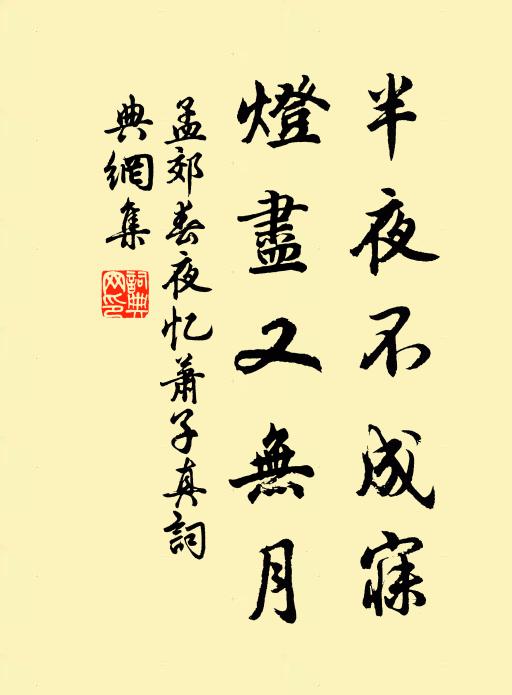 半夜不成寐
燈盡又無月
孟郊春夜忆蕭子真詞
典網集
詞典網印